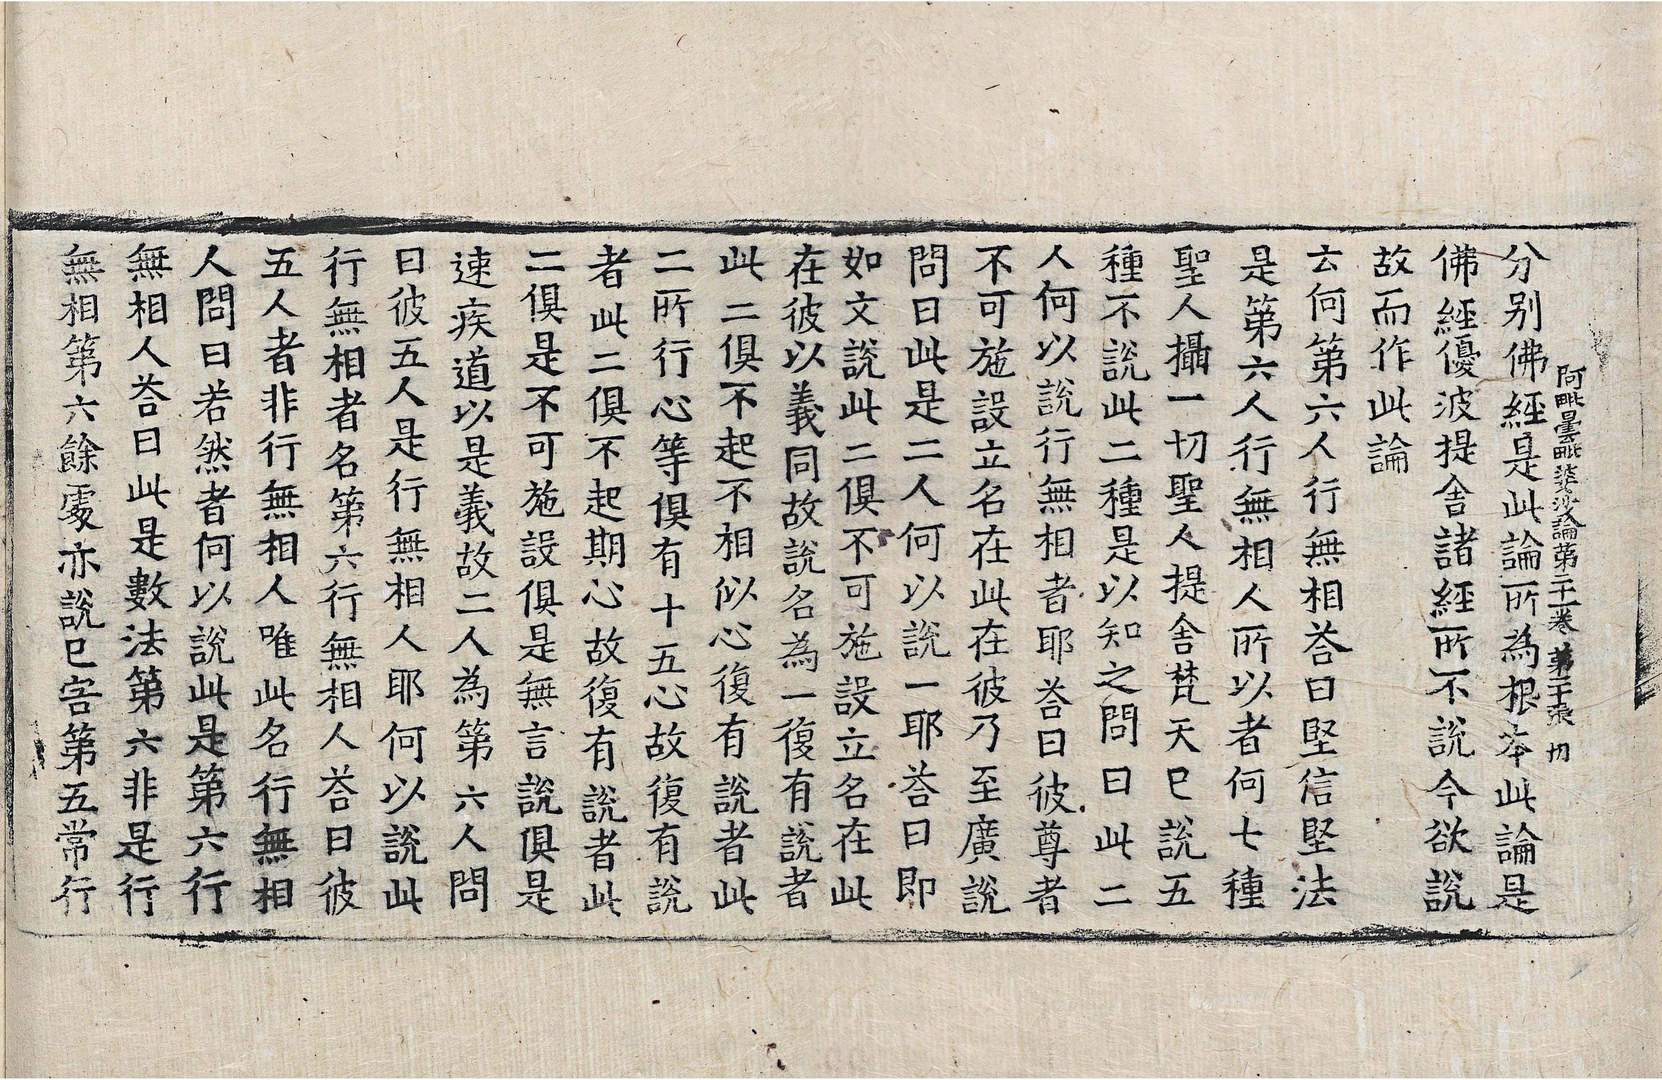 阿毗曇毗婆沙論第二十一卷 第二十張 切
分別佛經是此論所為根本此論是
佛經優波提舍諸經所不說今欲說
故而作此論
云何第六人行無相荅曰堅信堅法
是第六人行無相人所以者何七種
聖人攝一切聖人提舍梵天已說五
種不說此二種是以知之問曰此二
人何以說行無相者耶荅曰彼尊者
不可施設立名在此在彼乃至廣說
問曰此是二人何以說一耶荅曰即
如文說此二俱不可施設立名在此
在彼以義同故說名為一復有說者
此二俱不起不相似心復有說者此
二所行心等俱有十五心故復有說
者此二俱不起期心故復有說者此
二俱是不可施設俱是無言說俱是
速疾道以是義故二人為第六人問
曰彼五人是行無相人耶何以說此
行無相者名第六行無相人荅曰彼
五人者非行無相人唯此名行無相
人問曰若然者何以說此是第六行
無相人荅曰此是數法第六非是行
無相第六餘處亦說已害第五常行